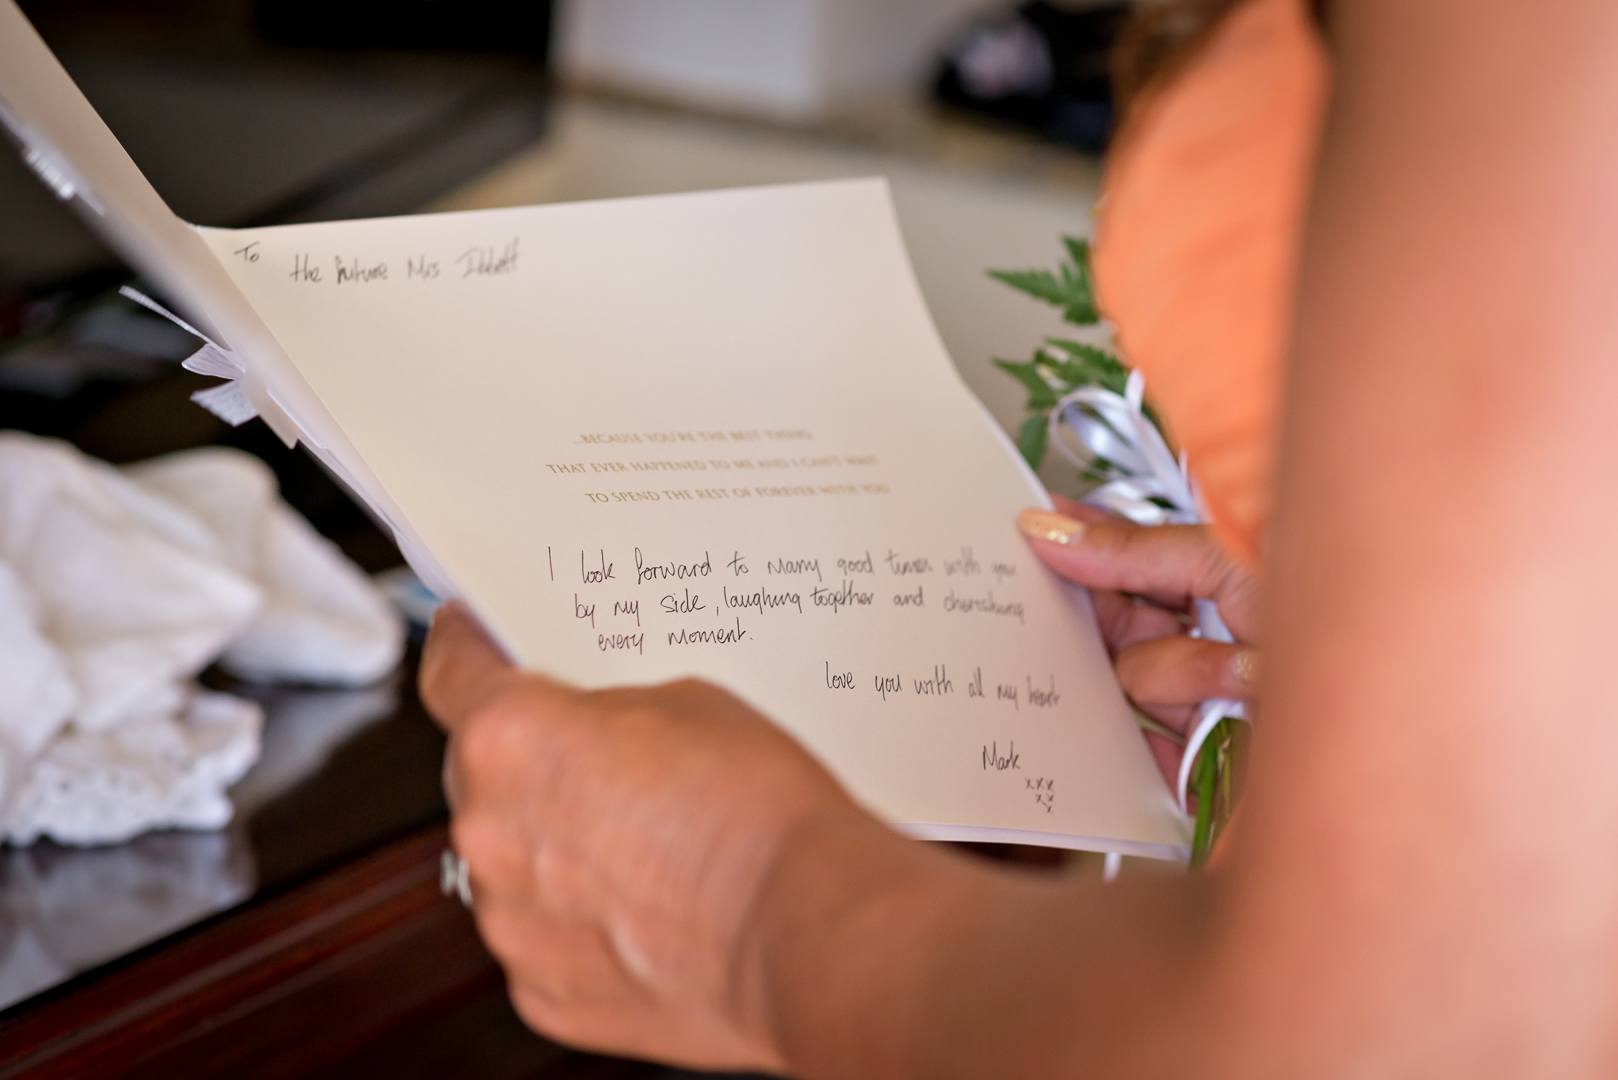 To the future Mrs Ibbett
...BECAUSE YOU'RE THE BEST THING
THAT EVER HAPPENED TO ME AND I CAN'T WAIT
TO SPEND THE REST OF FOREVER WITH YOU
I look forward to many good times with you
by my side, laughing together and cherishing
every moment.
love you with all my heart
Mark
xxx
xx
x